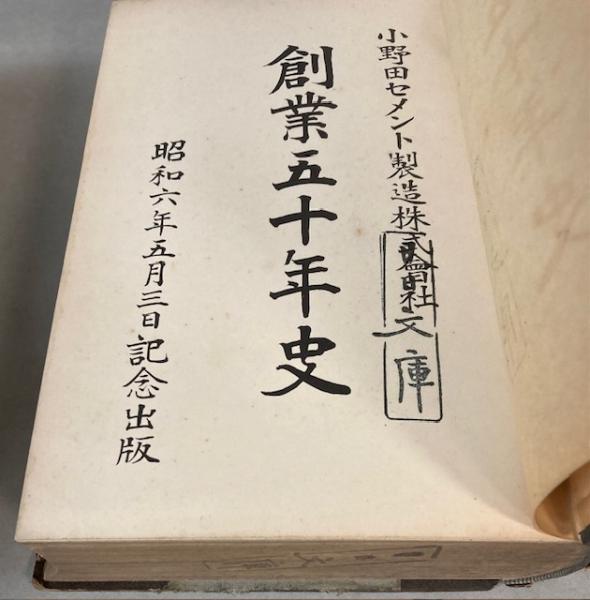 小野田セメント製造株式會社
創業五十年史
昭和六年五月三日記念出版
文庫